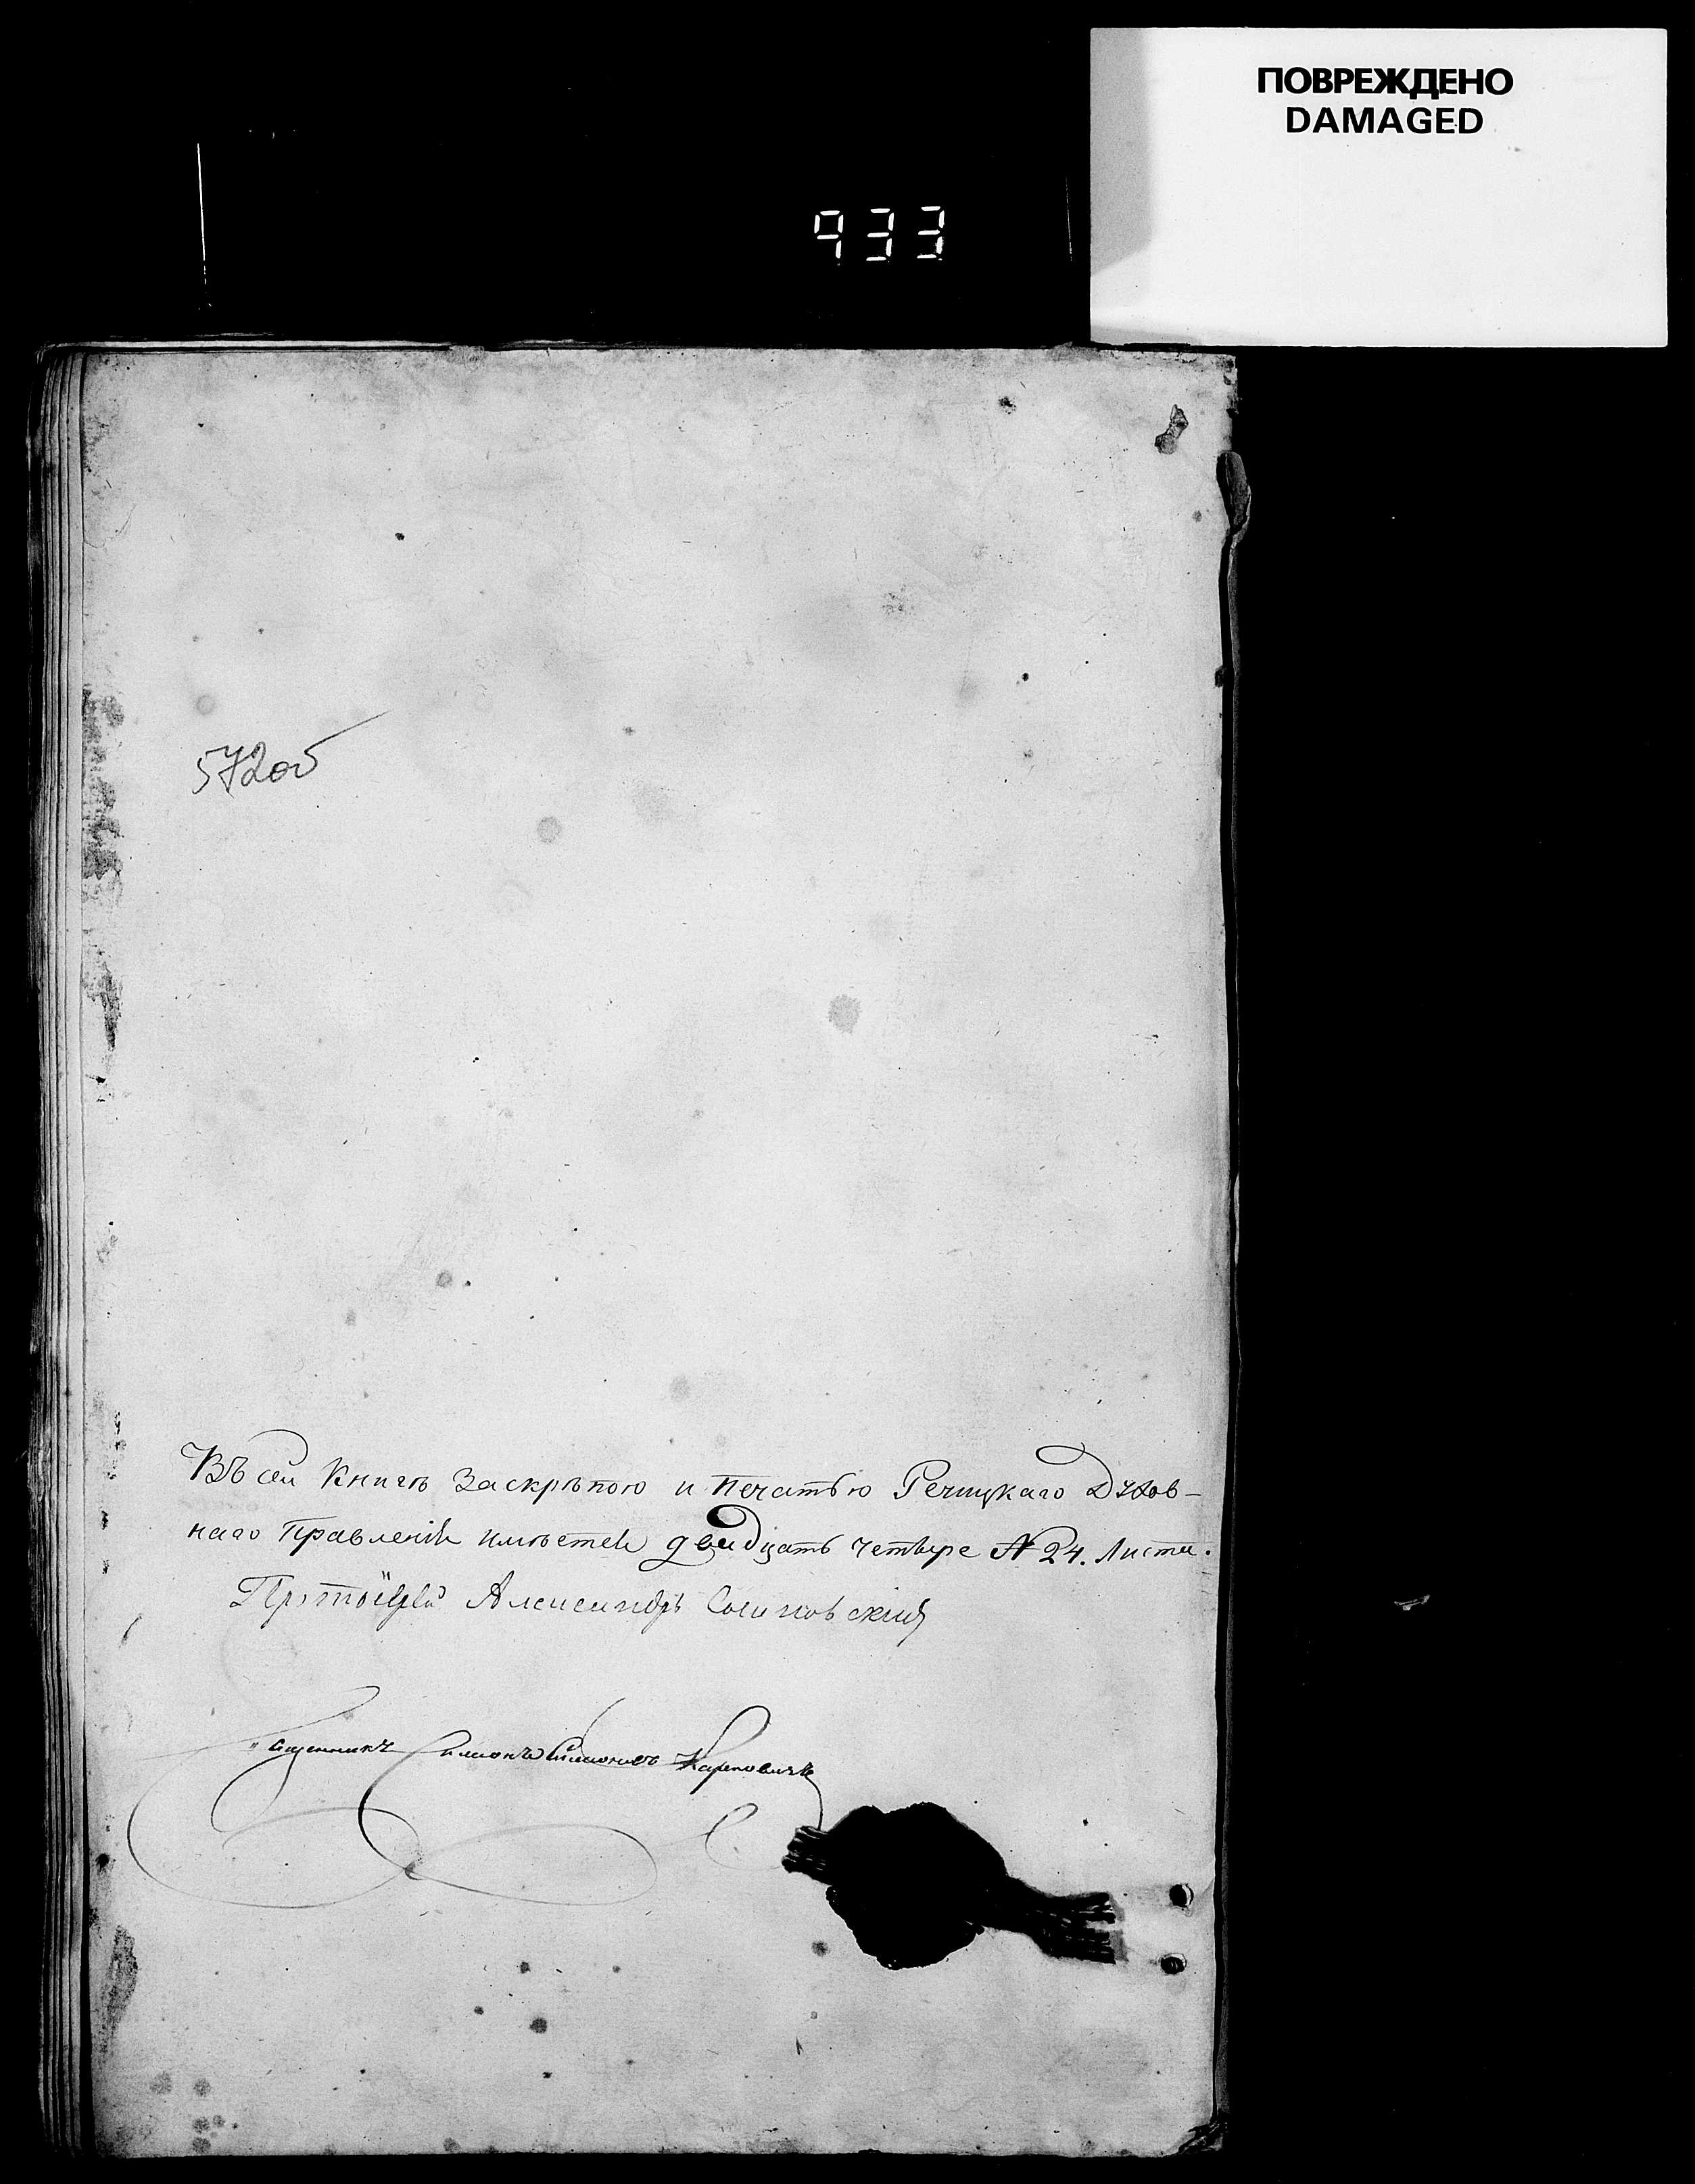 ПОВРЕЖДЕНО
DAMAGED
933
572об
Въ сей Книгѣ За скрѣпою и печатью Речицкаго Духов-
наго Правленія имѣется двадцать четыре № 24. листа.
Протоіерей Александръ
Священникъ Симонъ Карповичъ